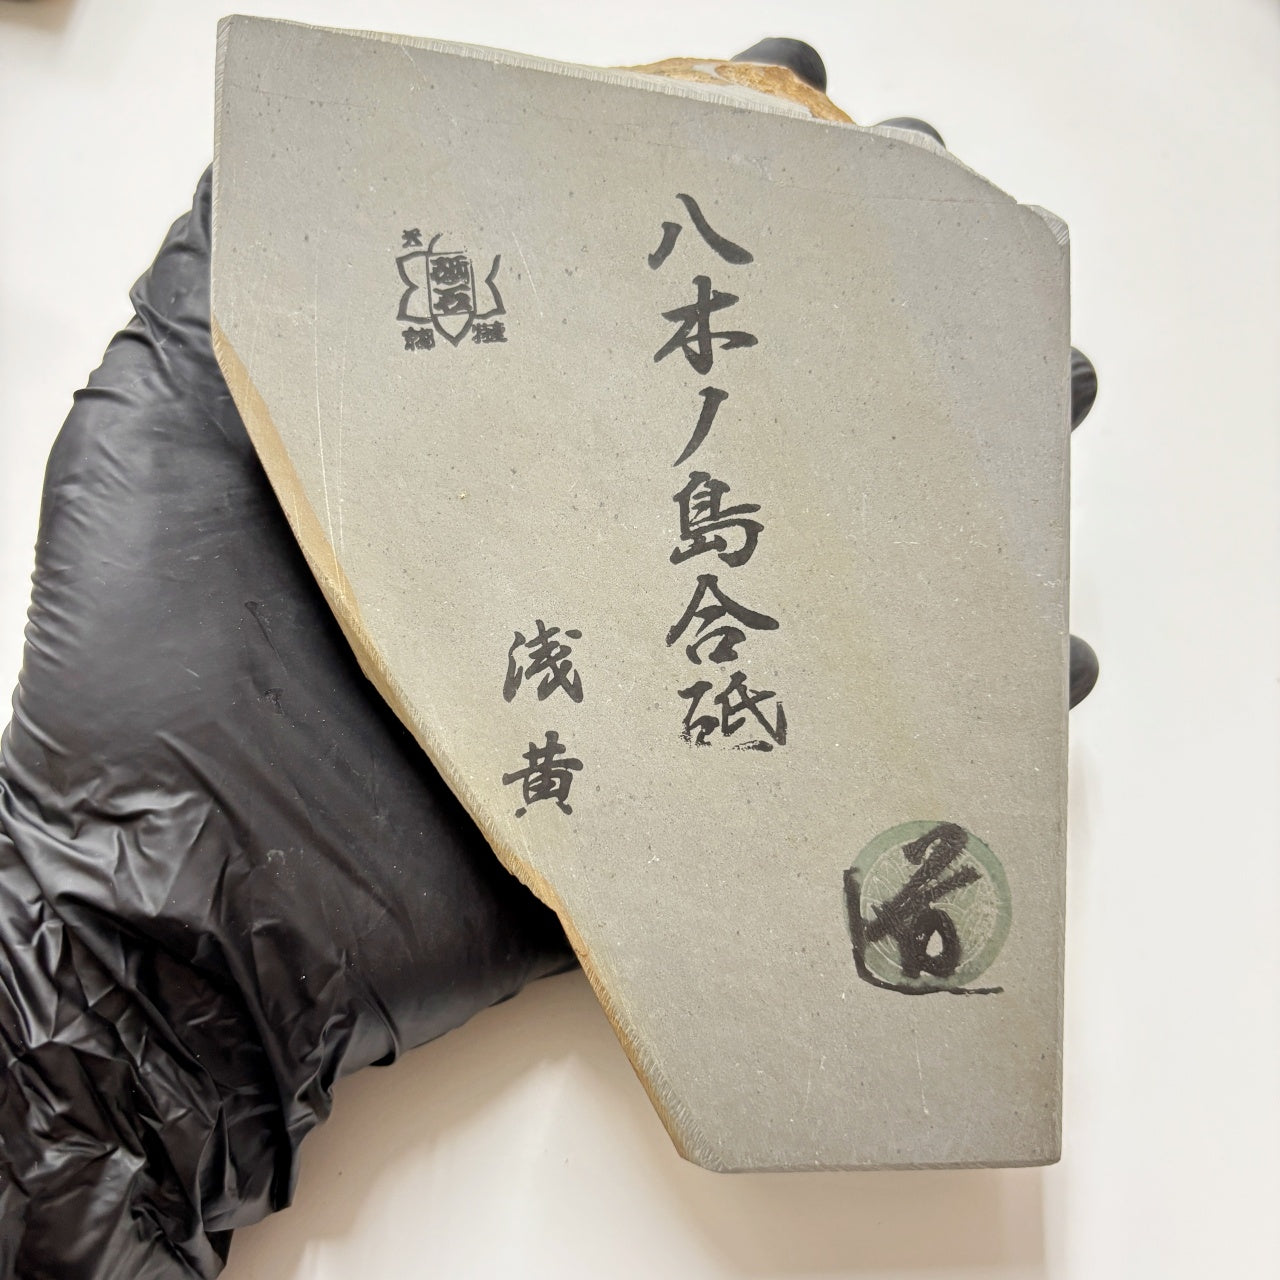 八木ノ島合砥
浅黄
砥石